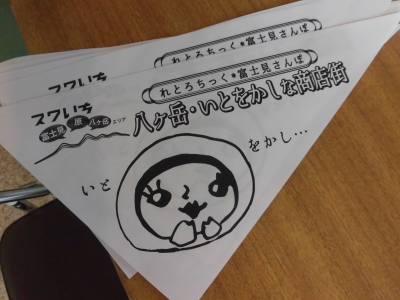 れとろちっく*富士見さんぽ
スワいち
れとろちっく*富士見さんぽ
スワいち
富士見 原 八ヶ岳エリア
八ヶ岳・いとをかしな商店街
いと
をかし…